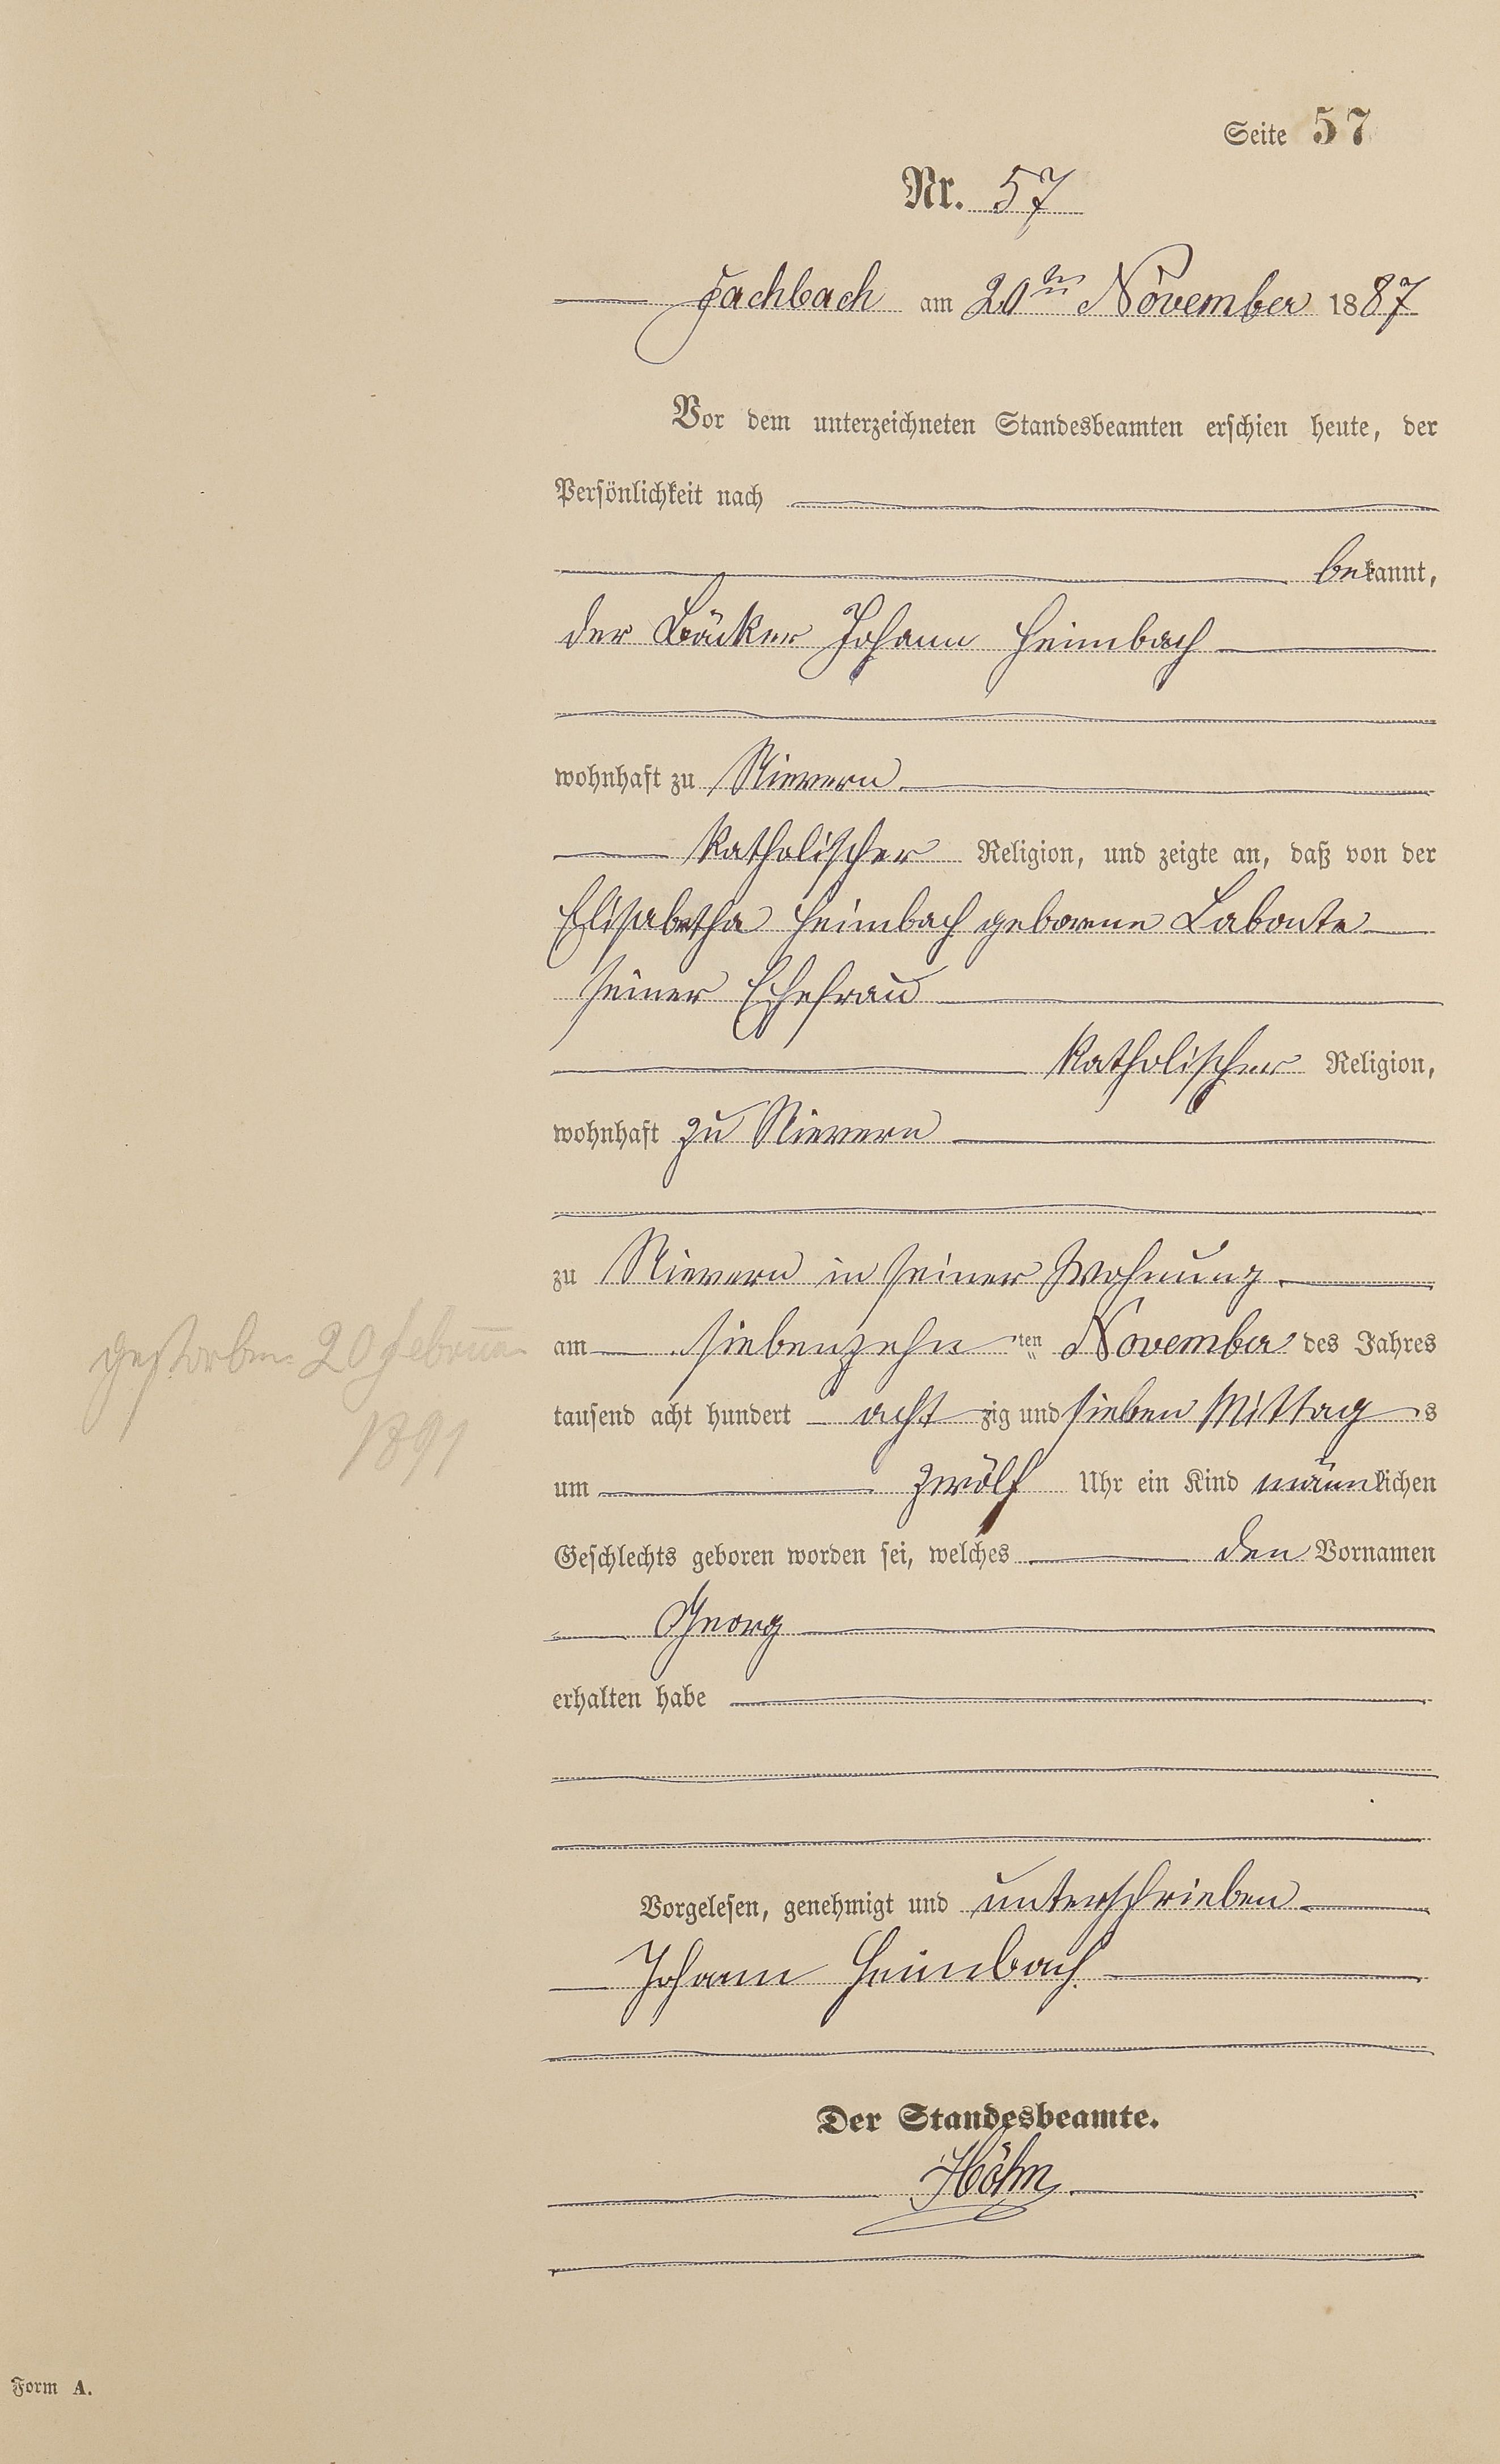 Seite 57
Nr. 57
Fachbach am 20ten November 1887
Vor dem unterzeichneten Standesbeamten erschien heute, der
Persönlichkeit nach
bekannt,
der Bäcker Johann Heimbach
wohnhaft zu Nievern
katholischer Religion, und zeigte an, daß von der
Elisabetha Heimbach geborene Labonte
seiner Ehefrau
katholischer Religion,
wohnhaft zu Nievern
zu Nievern in seiner Wohnung
gestorben 20 Februar
1891
am siebenzehnten November des Jahres
tausend acht hundert achtzig und sieben Mittags
um zwölf Uhr ein Kind männlichen
Geschlechts geboren worden sei, welches den Vornamen
Georg
erhalten habe
Vorgelesen, genehmigt und unterschrieben
Johann Heimbach
Der Standesbeamte.
Höhn
Form A.